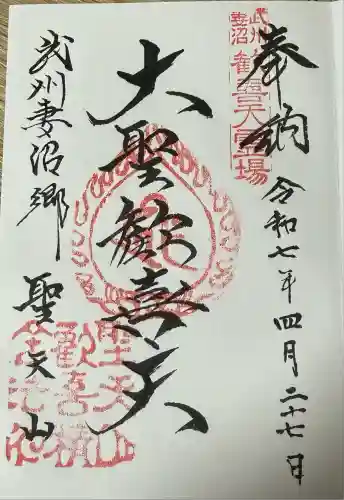 奉納
令和七年四月二十七日
武州妻沼
歓喜天霊場
大聖歓喜天
武州妻沼郷
聖天山